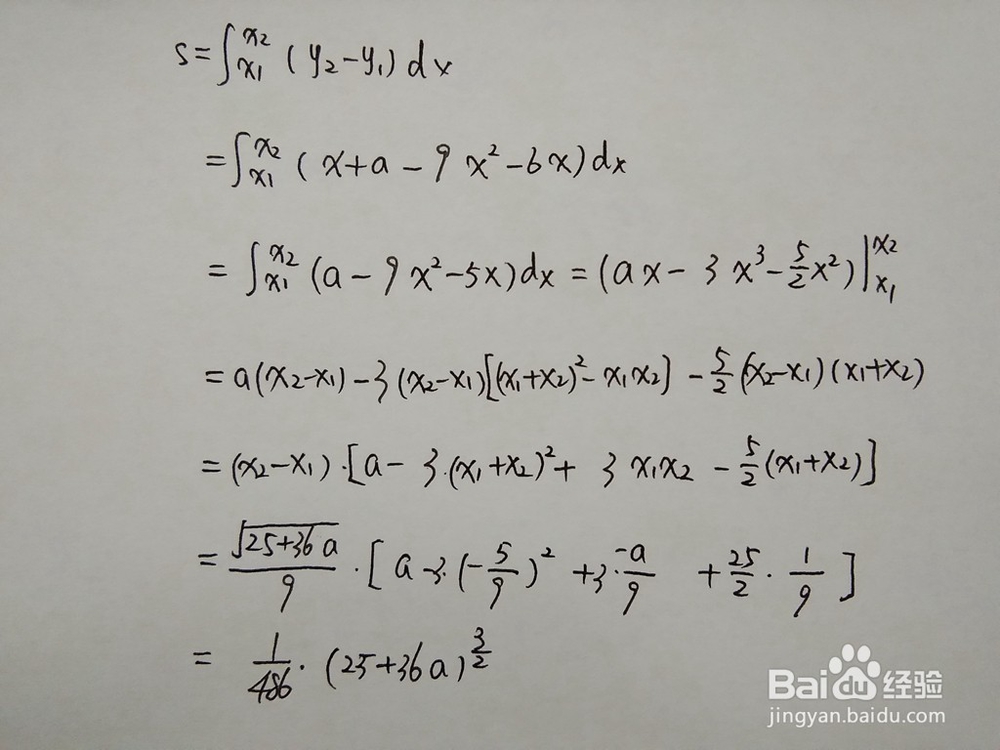 S=∫_{x1}^{x2} (y2-y1) dx
=∫_{x1}^{x2} (x+a-9x²-6x)dx
=∫_{x1}^{x2} (a-9x²-5x)dx=(ax-3x³-5/2x²)|_{x1}^{x2}
=a(x2-x1)-3(x2-x1)[(x1+x2)²-x1x2]-5/2(x2-x1)(x1+x2)
=(x2-x1)·[a-3·(x1+x2)²+3x1x2-5/2(x1+x2)]
=√(25+36a)/9·[a-3·(-5/9)²+3·-a/9+25/2·1/9]
=1/486·(25+36a)^{3/2}
Baidu经验
jingyan.baidu.com